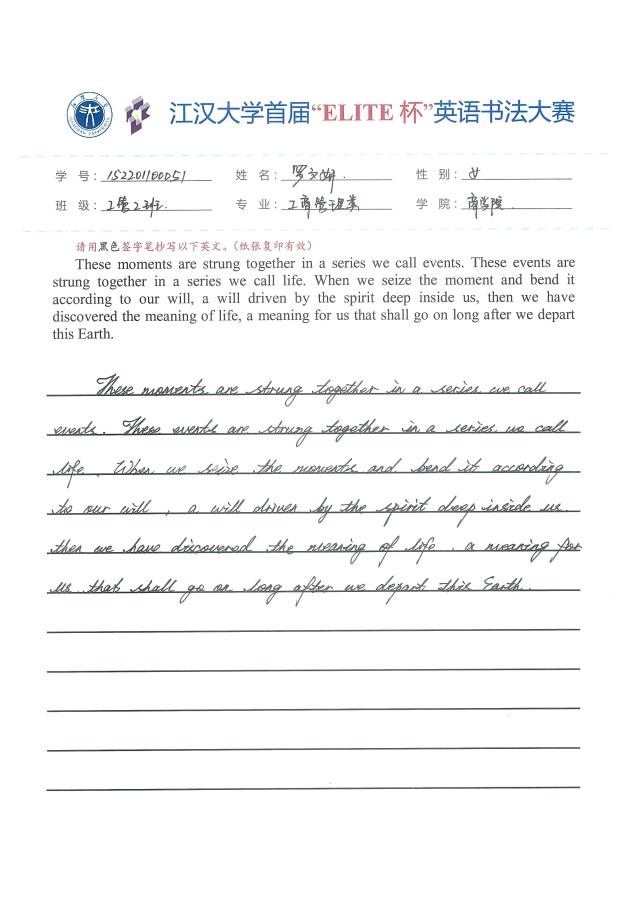 江汉大学首届“ELITE 杯”英语书法大赛
学 号： 152201100051 姓 名： 罗文 性 别： 女
班 级： 工管2班. 专 业： 工商管理类 学 院： 商学院
请用黑色签字笔抄写以下英文。（纸张复印有效）
These moments are strung together in a series we call events. These events are
strung together in a series we call life. When we seize the moment and bend it
according to our will, a will driven by the spirit deep inside us, then we have
discovered the meaning of life, a meaning for us that shall go on long after we depart
this Earth.
These moments are strung together in a series we call
events. These events are strung together in a series we call
life. When we seize the moments and bend it according
to our will, a will driven by the spirit deep inside us.
then we have discovered the meaning of life. a meaning for
us that shall go on long after we depart this Earth.